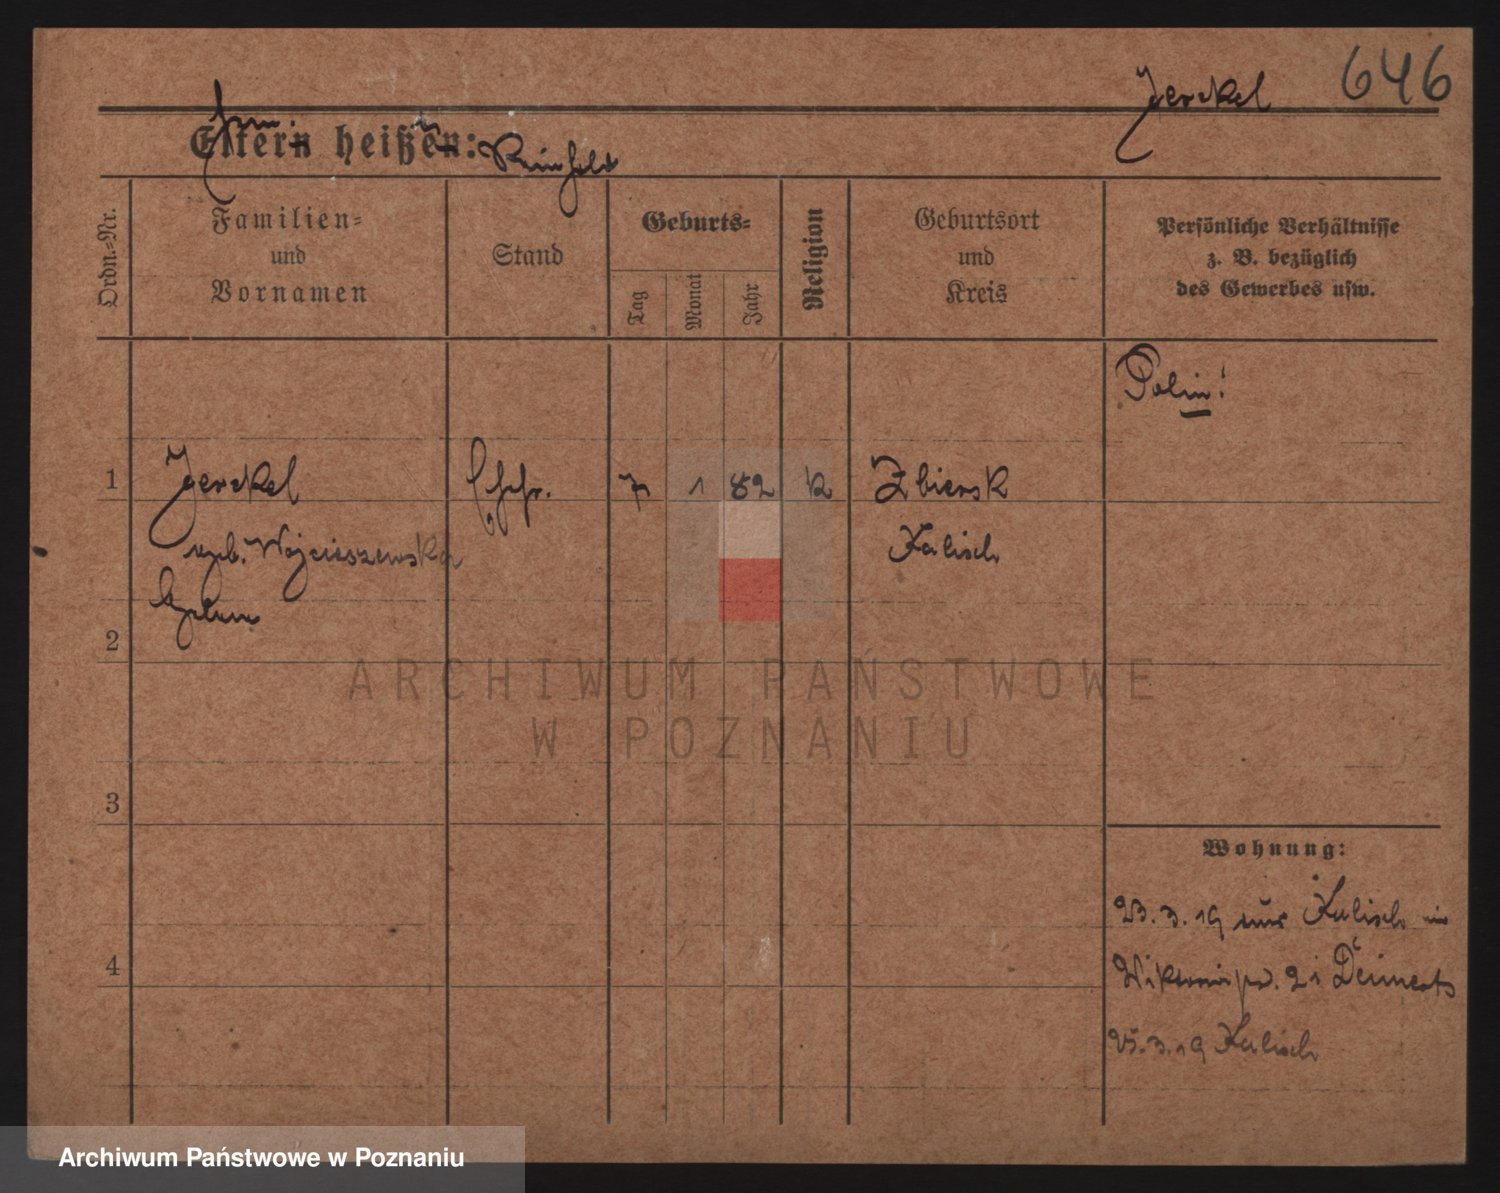 646
Jerckel
Eltern heißen: Reinhold
Ordn.-Nr.
Familien-
und
Vornamen
Stand
Geburts-
Tag
Monat
Jahr
Religion
Geburtsort
und
Kreis
Persönliche Verhältnisse
z. B. bezüglich
des Gewerbes usw.
Polin!
1
Jerckel
geb. Wojcieszewska
Helene
Ehefr.
7
1
82
k
Zbiersk
Kalisch
2
3
4
Wohnung:
23.3.19 aus Kalisch in
21
25.3.19 Kalisch
ARCHIWUM PAŃSTWOWE
W POZNANIU
Archiwum Państwowe w Poznaniu